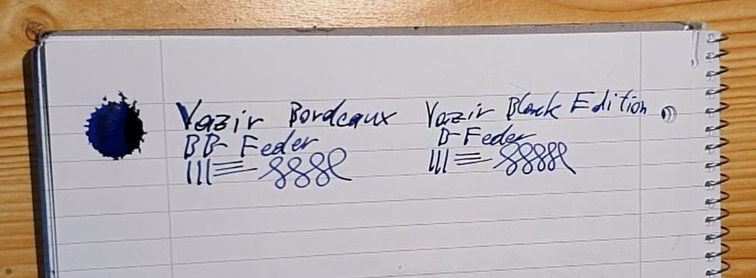 Vazir Bordeaux
BB-Feder
Vazir Black Edition
B-Feder